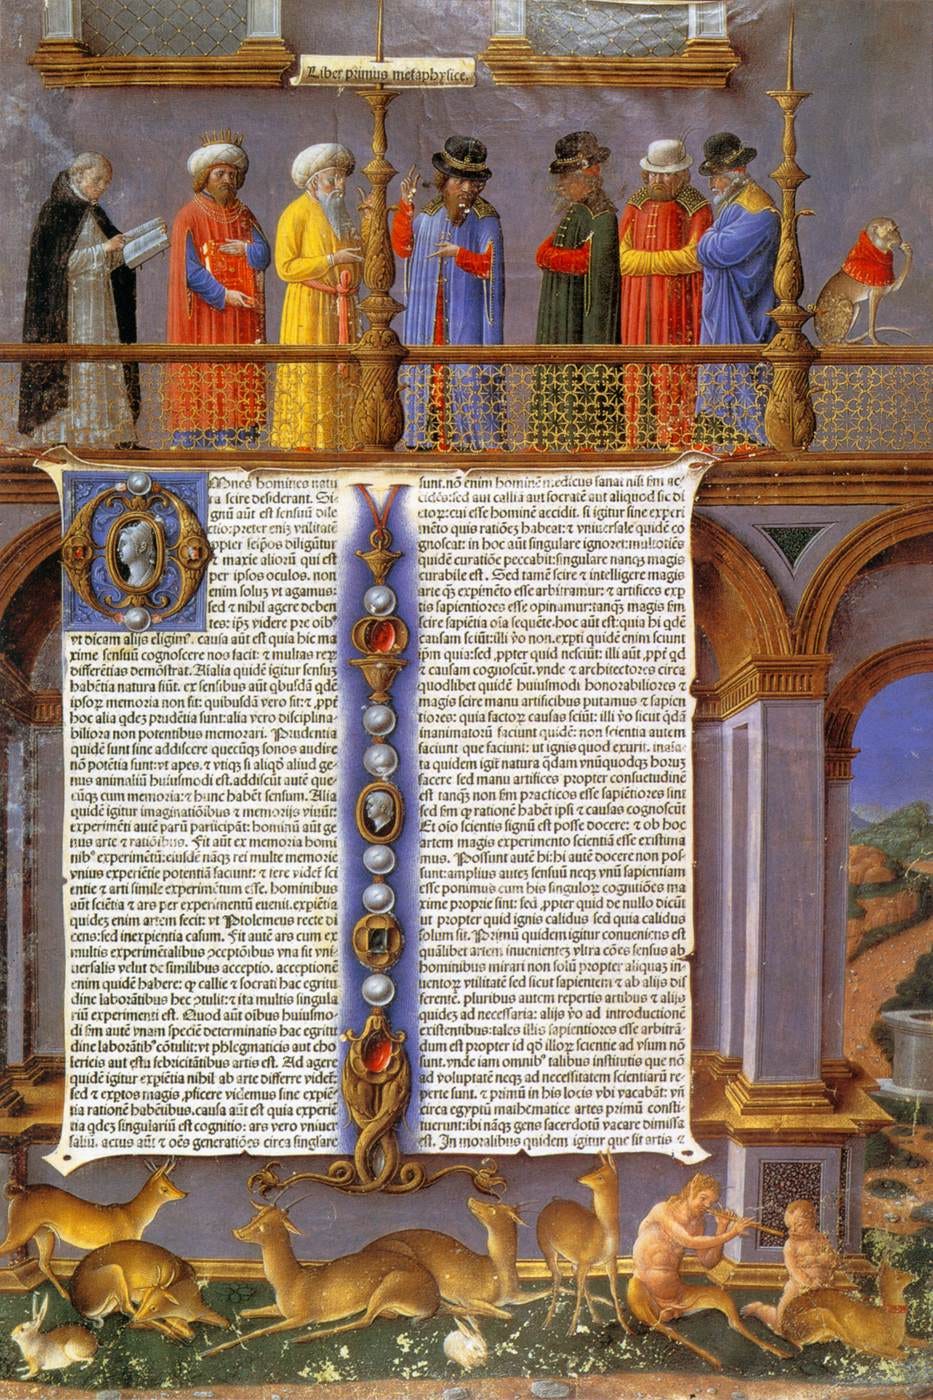 Liber primus metaphysice.
Omnes homines natu
ra scire desiderant. Si-
gnũ aũt est sensuũ dile
ctio: preter enĩ vtilitatẽ
ppter seip̃os diligũtur
⁊ maxie aliorũ qui est
per ipsos oculos. non
enim soluʒ vt agamus:
sed ⁊ nihil agere deben
tes: ip̃ʒ videre pre oib⁹
vt dicam alijs eligim⁹. causa aũt est quia hic ma
xime sensuũ cognoscere nos facit: ⁊ multas reʒ
differẽtias demõstrat. Aĩalia quidẽ igitur sensuʒ
habẽtia natura fiũt. ex sensibus aũt qbusdã qdẽ
ipsoʒ memoria non fit: quibusdã vero fit: ⁊ ,ppt̃
hoc alia qdeʒ prudẽtia sunt: alia vero disciplina-
biliora non potentibus memorari. Prudentia
quidẽ sunt sine addiscere quecũqʒ sonos audire
nõ potẽtia sunt: vt apes. ⁊ vtiqʒ si aliqđ aliud ge-
nus animaliũ huiusmodi est. addiscũt autẽ que-
cũqʒ cum memoria: ⁊ hunc habẽt sensum. Alia
quidẽ igitur imaginatiõibus ⁊ memorijs viuũt:
experimẽti autẽ parũ participãt: hominũ aũt ge
nus arte ⁊ ratiõibus. Fit aũt ex memoria homi
nib⁹ experimẽtũ: eiusdẽ nãqʒ rei multe memorie
vnius experiẽtie potentiã faciunt: ⁊ fere videt̃ sci
entie ⁊ arti simile experimẽtum esse. hominibus
aũt sciẽtia ⁊ ars per experimentũ euenit. expiẽtia
quideʒ enim artem fecit: vt Ptolemeus recte di
cens: sed inexpientia casum. Fit autẽ ars cum ex
multis experimẽtalibus ↄceptõibus vna fit vni-
uersalis velut de similibus acceptio. acceptionẽ
enim quidẽ habere: qđ callie ⁊ socrati hac egritu
dine laborãtibus hec ↄtulit: ⁊ ita multis singula
riũ experimenti est. Quod aũt oĩbus huiusmo-
di s̃m autẽ vnam speciẽ determinatis hac egritu
dine laborãtib⁹ cõtulit: vt phlegmaticis aut cho
lericis aut estu febricitãtibus artis est. Ad agere
quidẽ igitur expiẽtia nihil ab arte differre videt̃:
sed ⁊ exptos magis ,pficere videmus sine expiẽ-
tia rationẽ habẽtibus. causa aũt est quia experiẽ
tia qdeʒ singulariũ est cognitio: ars vero vniuer
saliũ. actus aũt ⁊ oẽs generatiões circa singlare
sunt. nõ enim hominẽ medicus sanat nisi s̃m ac-
cidẽs: sed aut calliã aut socratẽ aut aliquod sic di
ctoʒ: cui esse hominẽ accidit. si igitur sine experi
mẽto quis ratiõeʒ habeat: ⁊ vniuersale quidẽ co
gnoscat: in hoc aũt singulare ignoret: multotiẽs
quidẽ curatiõe peccabit: singulare nanqʒ magis
curabile est. Sed tamẽ scire ⁊ intelligere magis
arte qʒ expimẽto esse arbitramur: ⁊ artifices exp
tis sapientiores esse opinamur: tanqʒ magis s̃m
scire sapiẽtia oĩa sequẽte. hoc aũt est: quia hi qdẽ
causam sciũt: illi v̾o non. expti quidẽ enim sciunt
ip̃m quia: sed ,ppter quid nesciũt: illi aũt ,ppt̃ qđ
⁊ causam cognoscũt. vnde ⁊ architectores circa
quodlibet quidẽ huiusmodi honorabiliores ⁊
magis scire manu artificibus putamus ⁊ sapien
tiores: quia factoʒ causas sciũt: illi v̾o sicut qdã
inanimatorũ faciunt quidẽ: non scientia autem
faciunt que faciunt: ut ignis quod exurit. inaĩa-
ta quidem igit̃ natura qdam vnũquodqʒ horuʒ
facere sed manu artifices propter consuetudinẽ
est tanqʒ non s̃m practicos esse sapiẽtiores sint
sed s̃m qđ rationẽ habẽt ipsi ⁊ causas cognoscũt
Et oĩo scientis signũ est posse docere: ⁊ ob hoc
artem magis experimento scientiã esse existima
mus. Possunt autẽ hi: hi autẽ docere non pos-
sunt: amplius auteʒ sensuũ neqʒ vnũ sapientiam
esse ponimus cum his singuloʒ cognitiões ma
xime proprie sint: sed ,ppter quid de nullo dicũt
ut propter quid ignis calidus sed quia calidus
solum sit. Primũ quidem igitur conueniens est
quãlibet artem inuenientẽ: vltra cões sensus ab
hominibus mirari non solũ propter aliquaʒ in-
uentoʒ vtilitatẽ sed sicut sapientem ⁊ ab alijs dif
ferentẽ. pluribus autem repertis artibus ⁊ alijs
quideʒ ad necessaria: alijs v̾o ad introductionẽ
existentibus: tales illis sapientiores esse arbitrã-
dum est propter id qđ illoʒ scientie ad vsum nõ
sunt. vnde iam omnib⁹ talibus institutis que nõ
ad voluptatẽ neqʒ ad necessitatem scientiarũ re-
perte sunt. ⁊ primũ in his locis vbi vacabãt: vñ
circa egyptũ mathematice artes primũ consti-
tuerunt: ibi nãqʒ gens sacerdotũ vacare dimissa
est. In moralibus quidem igitur que sit artis ⁊